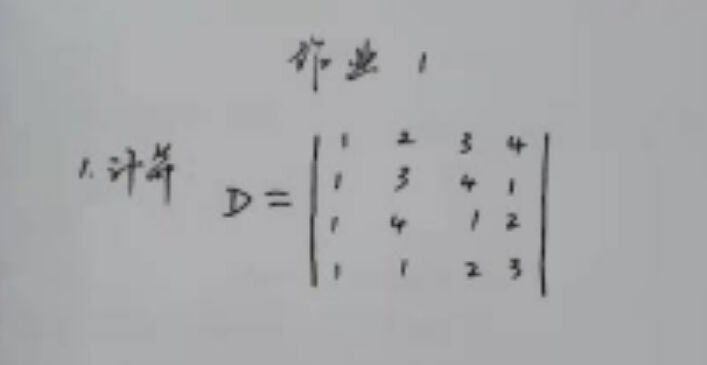 作业 1
1. 计算 D =
| 1 2 3 4 |
| 1 3 4 1 |
| 1 4 1 2 |
| 1 1 2 3 |